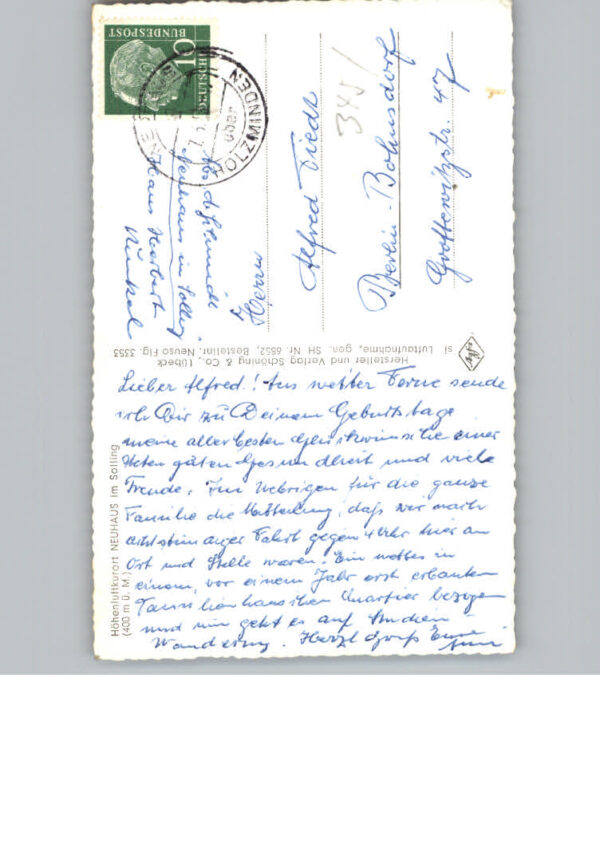 Lieber Alfred! Aus weiter Ferne sende
ich Dir zu Deinem Geburtstage
meine allerbesten Glückwünsche einer
steten guten Gesundheit und viele
Freude. Im Uebrigen für die ganze
Familie die Mitteilung, daß wir nach
Fahrt gegen 4 Uhr hier am
Ort und Stelle waren. Ein nettes in
einem, vor einem Jahr erst erbauten
Quartier bezogen
und nun geht es auf Studien-
Wanderung. Herzl. Gruß
Herrn
Alfred Tiedt
Berlin-Bohnsdorf
Grottewitzstr. 47
345/
Neuhaus im Solling
Hans Herbert
10
DEUTSCHE
BUNDESPOST
über
HOLZMINDEN
Höhenluftkurort NEUHAUS im Solling
(400 m ü. M.)
Hersteller und Verlag Schöning & Co., Lübeck
si Luftaufnahme, gen. SH Nr. 6852, Bestellnr. Neuso Flg. 3353